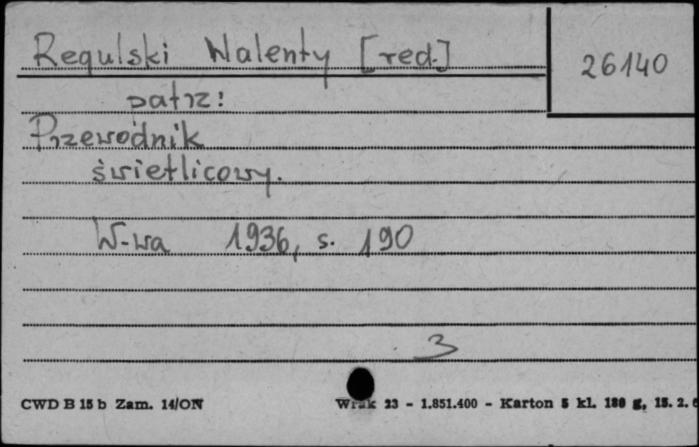 Regulski Walenty [red.]
26140
patrz:
Przewodnik
świetlicowy.
W-wa 1936, s. 190
3
CWD B 15 b Zam. 14/ON
Wrak 23 - 1.851.400 - Karton 5 kl. 180 g, 15. 2. 6